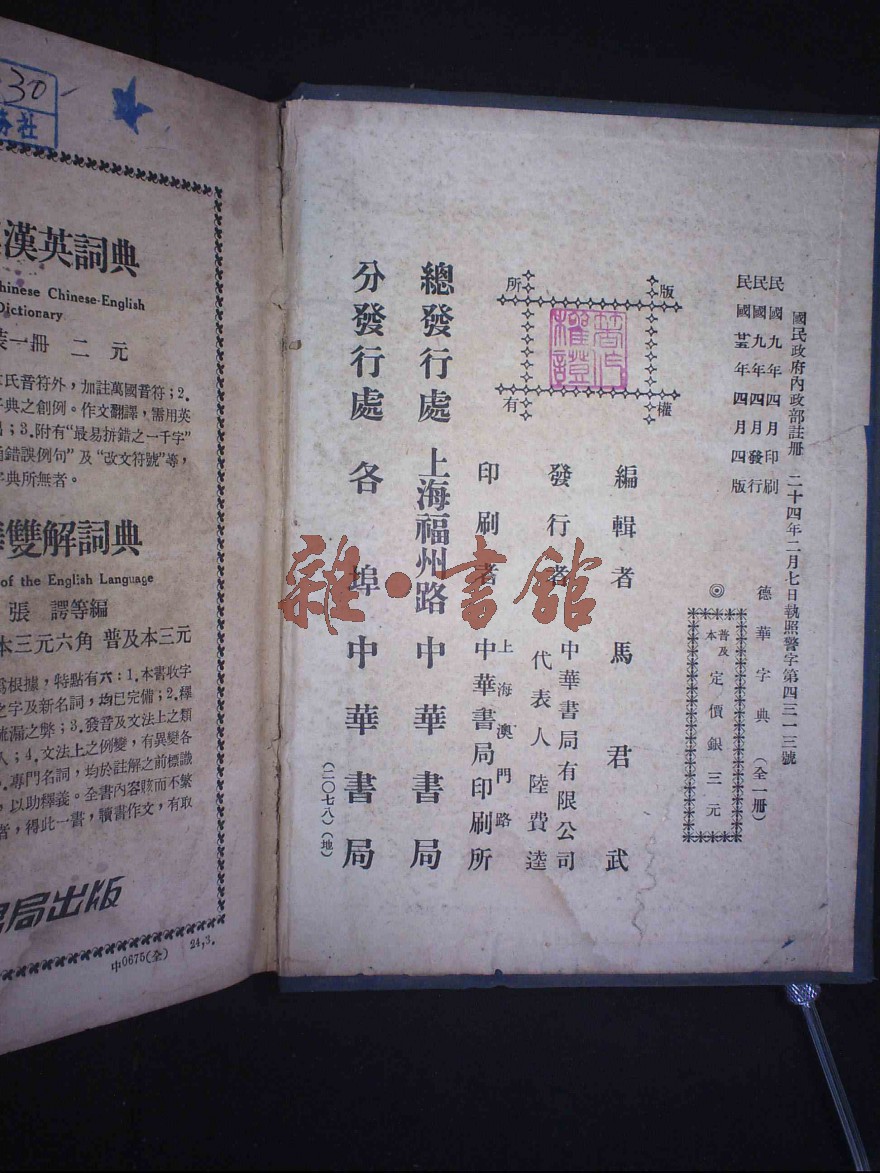 國民政府內政部註冊 二十四年二月七日執照警字第四三一三號
民國九年四月印刷
民國九年四月發行
民國廿五年四月四版
德華字典(全一冊)
◎
普及本
定價銀三元
版權所有
著作權證
編輯者 馬君武
發行者
中華書局有限公司
代表人 陸費逵
印刷者
上海澳門路
中華書局印刷所
總發行處 上海福州路 中華書局
分發行處 各埠 中華書局
(二〇七八)(地)
雜·書館
30-
漢英詞典
Chinese-English
Dictionary
一冊 二元
氏音符外,加註萬國音符;2.
字典之創例。作文翻譯,需用英
;3.附有“最易拚錯之一千字”
錯誤例句”及“改文符號”等,
典所無者。
雙解詞典
of the English Language
張諤等編
本三元六角 普及本三元
為根據,特點有六:1.本書收字
之字及新名詞,均已完備;2.釋
疏漏之弊;3.發音及文法上之類
人;4.文法上之例變,有異變各
專門名詞,均於註解之前標識
,以助釋義。全書內容賅而不繁
者,得此一書,讀書作文,有取
局出版
中0675(全) 24,3.